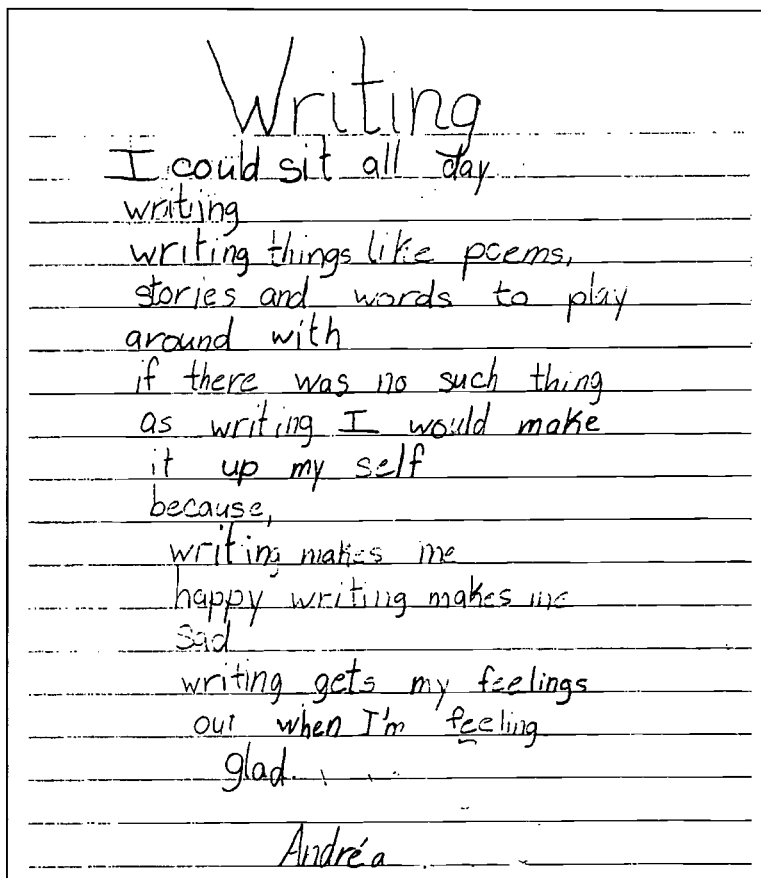 Writing
I could sit all day
writing
writing things like poems,
stories and words to play
around with
if there was no such thing
as writing I would make
it up my self
because,
writing makes me
happy writing makes me
sad
writing gets my feelings
out when I'm feeling
glad.
Andréa